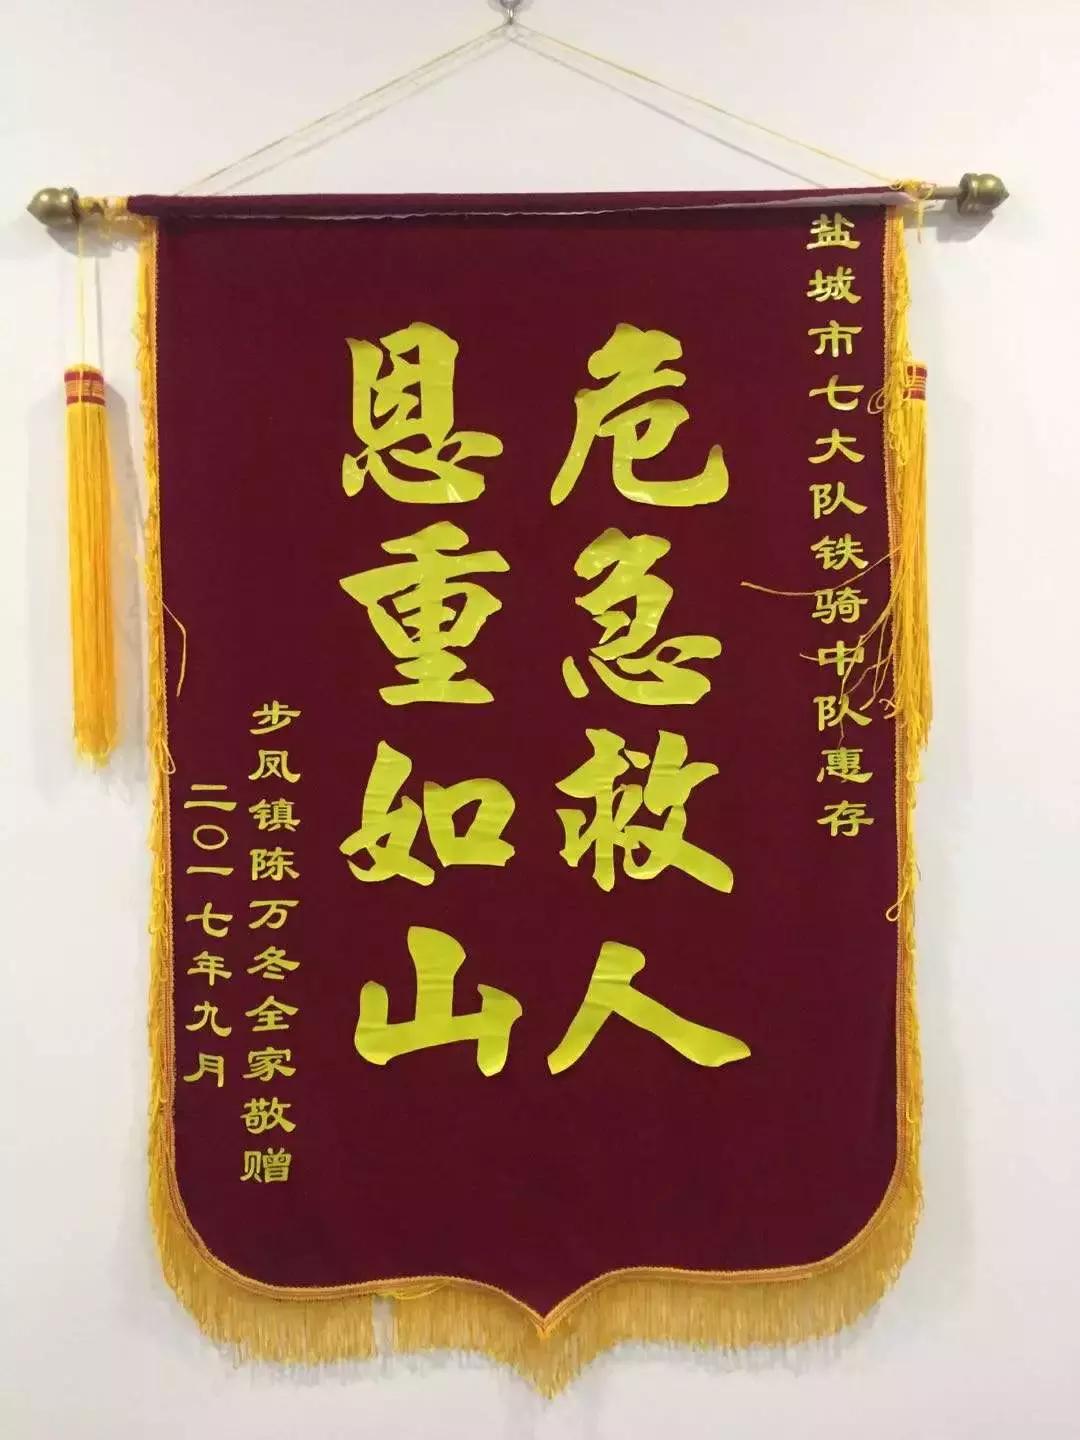 盐城市七大队铁骑中队惠存
危急救人
恩重如山
步凤镇陈万冬全家敬赠
二〇一七年九月